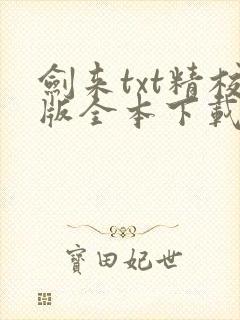 劍来txt精校
版全本下載
寳田妃世